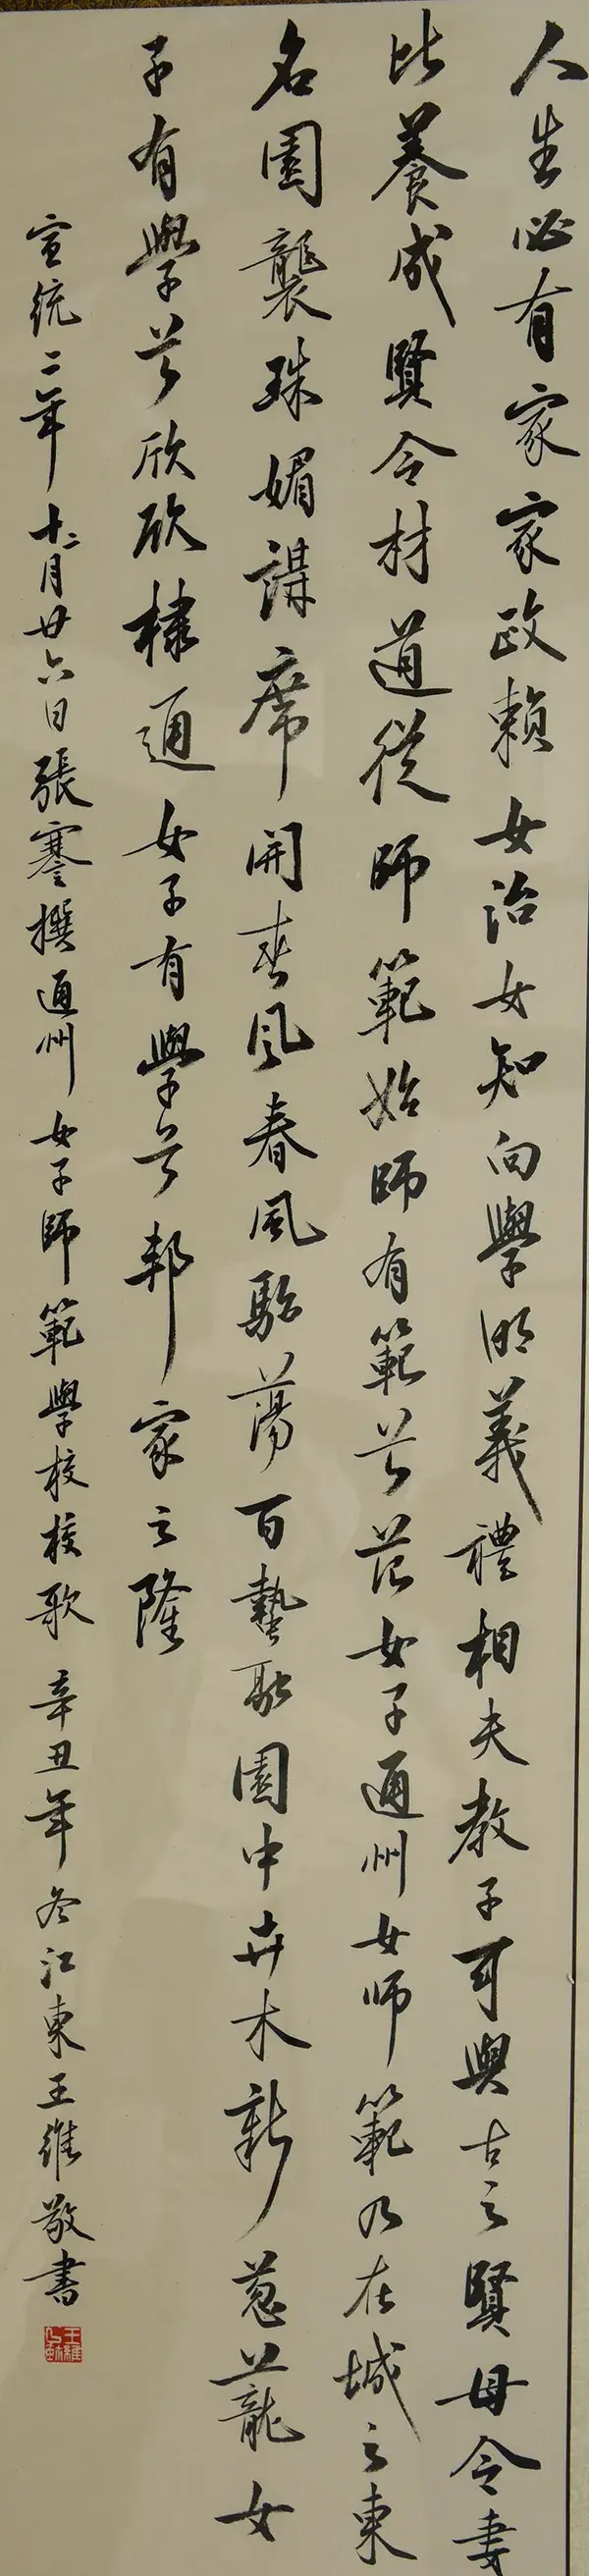 人生必有家家政賴女治女知向學明義禮相夫教子可與古之賢母令妻
比養成賢令材道從師範始師有範兮范女子通州女師範乃在城之東
名園襲珠媚講席開春風春風駘蕩百蟄融園中卉木新蔥蘢女
子有學兮欣欣棣通女子有學兮邦家之隆
宣統二年十二月廿六日張謇撰通州女子師範學校校歌辛丑年冬江東王維敬書